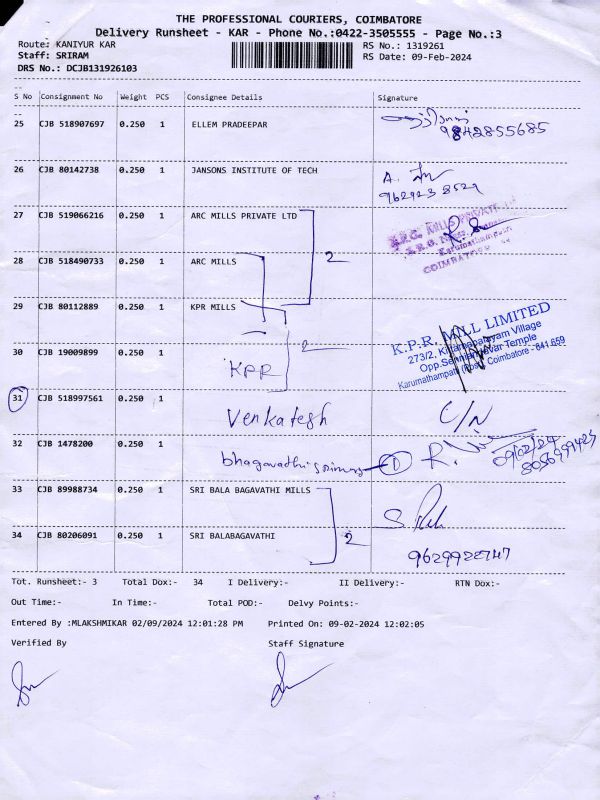 THE PROFESSIONAL COURIERS, COIMBATORE
Delivery Runsheet - KAR - Phone No.:0422-3505555 - Page No.:3
Route: KANIYUR KAR RS No.: 1319261
Staff: SRIRAM RS Date: 09-Feb-2024
DRS No.: DCJB131926103
S No Consignment No Weight PCS Consignee Details Signature
25 CJB 518907697 0.250 1 ELLEM PRADEEPAR
9842855685
26 CJB 80142738 0.250 1 JANSONS INSTITUTE OF TECH A.
27 CJB 519066216 0.250 1 ARC MILLS PRIVATE LTD
2
COIMBATORE
28 CJB 518490733 0.250 1 ARC MILLS
29 CJB 80112889 0.250 1 KPR MILLS
K.P.R. MILL LIMITED
273/2, Village
Opp. Temple
Coimbatore - 641 659
30 CJB 19009899 0.250 1 KPR 2
31 CJB 518997561 0.250 1 Venkatesh C/N
32 CJB 1478200 0.250 1 bhagavathi 1 R. 09/02/24
33 CJB 89988734 0.250 1 SRI BALA BAGAVATHI MILLS
34 CJB 80206091 0.250 1 SRI BALABAGAVATHI 2
Tot. Runsheet:- 3 Total Dox:- 34 I Delivery:- II Delivery:- RTN Dox:-
Out Time:- In Time:- Total POD:- Delvy Points:-
Entered By :MLAKSHMIKAR 02/09/2024 12:01:28 PM Printed On: 09-02-2024 12:02:05
Verified By Staff Signature